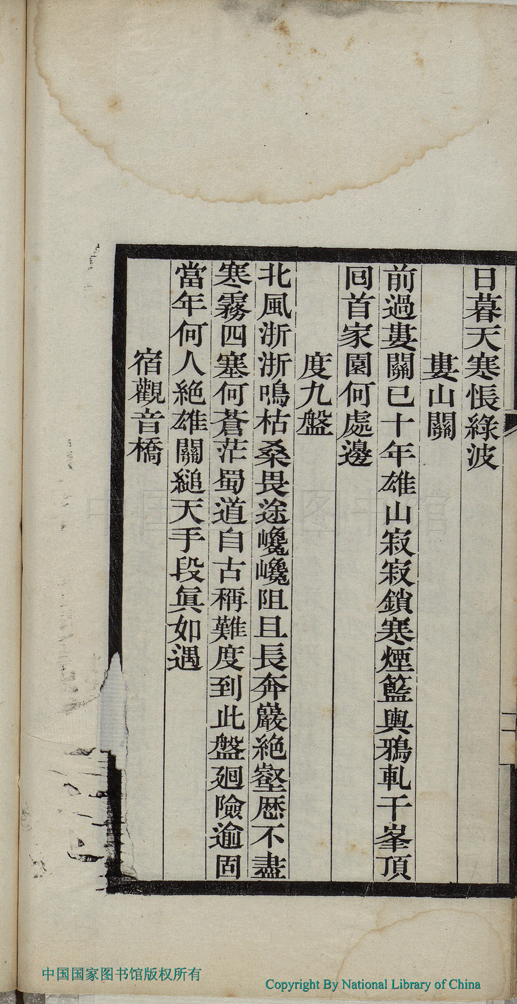 日暮天寒悵綠波
婁山關
前過婁關已十年雄山寂寂鎖寒煙籃輿鴉軋千峯頂
回首家園何處邊
度九盤
北風淅淅鳴枯桑畏途巉巉阻且長奔巖絶壑歷不盡
寒霧四塞何蒼茫蜀道自古稱難度到此盤廻險逾固
當年何人絶雄關縋天手段眞如遇
宿觀音橋
中国国家图书馆版权所有
Copyright By National Library of China